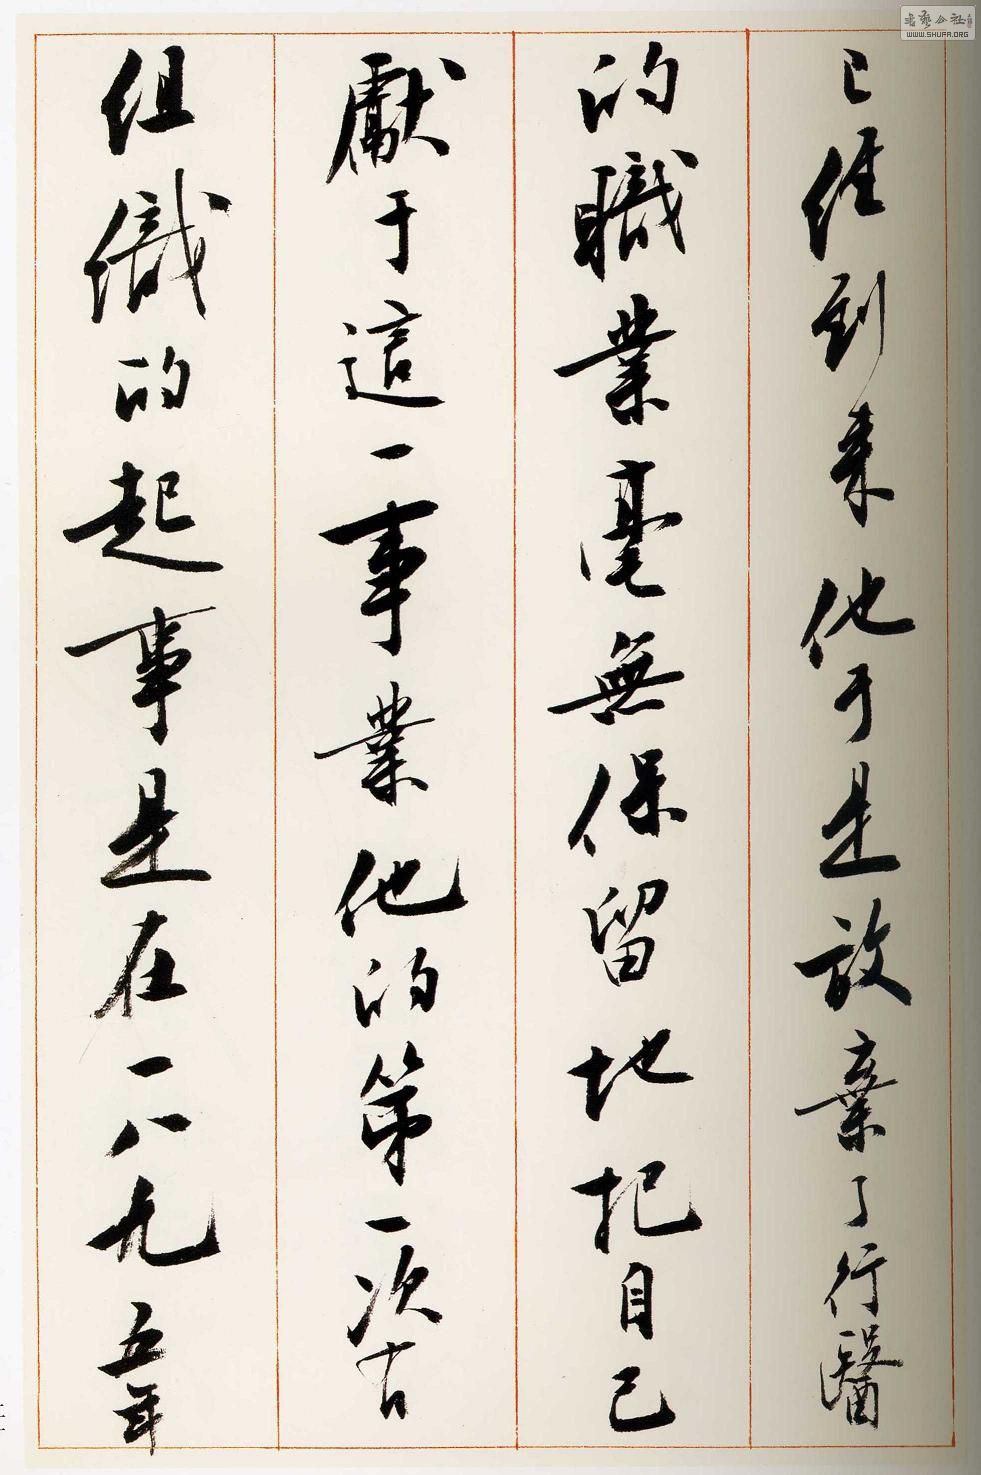 已經到来他于是放棄了行醫
的職業毫無保留地把自己
獻于這一事業他的第一次有
組織的起事是在一八九五年
書藝公社
WWW.SHUFA.ORG